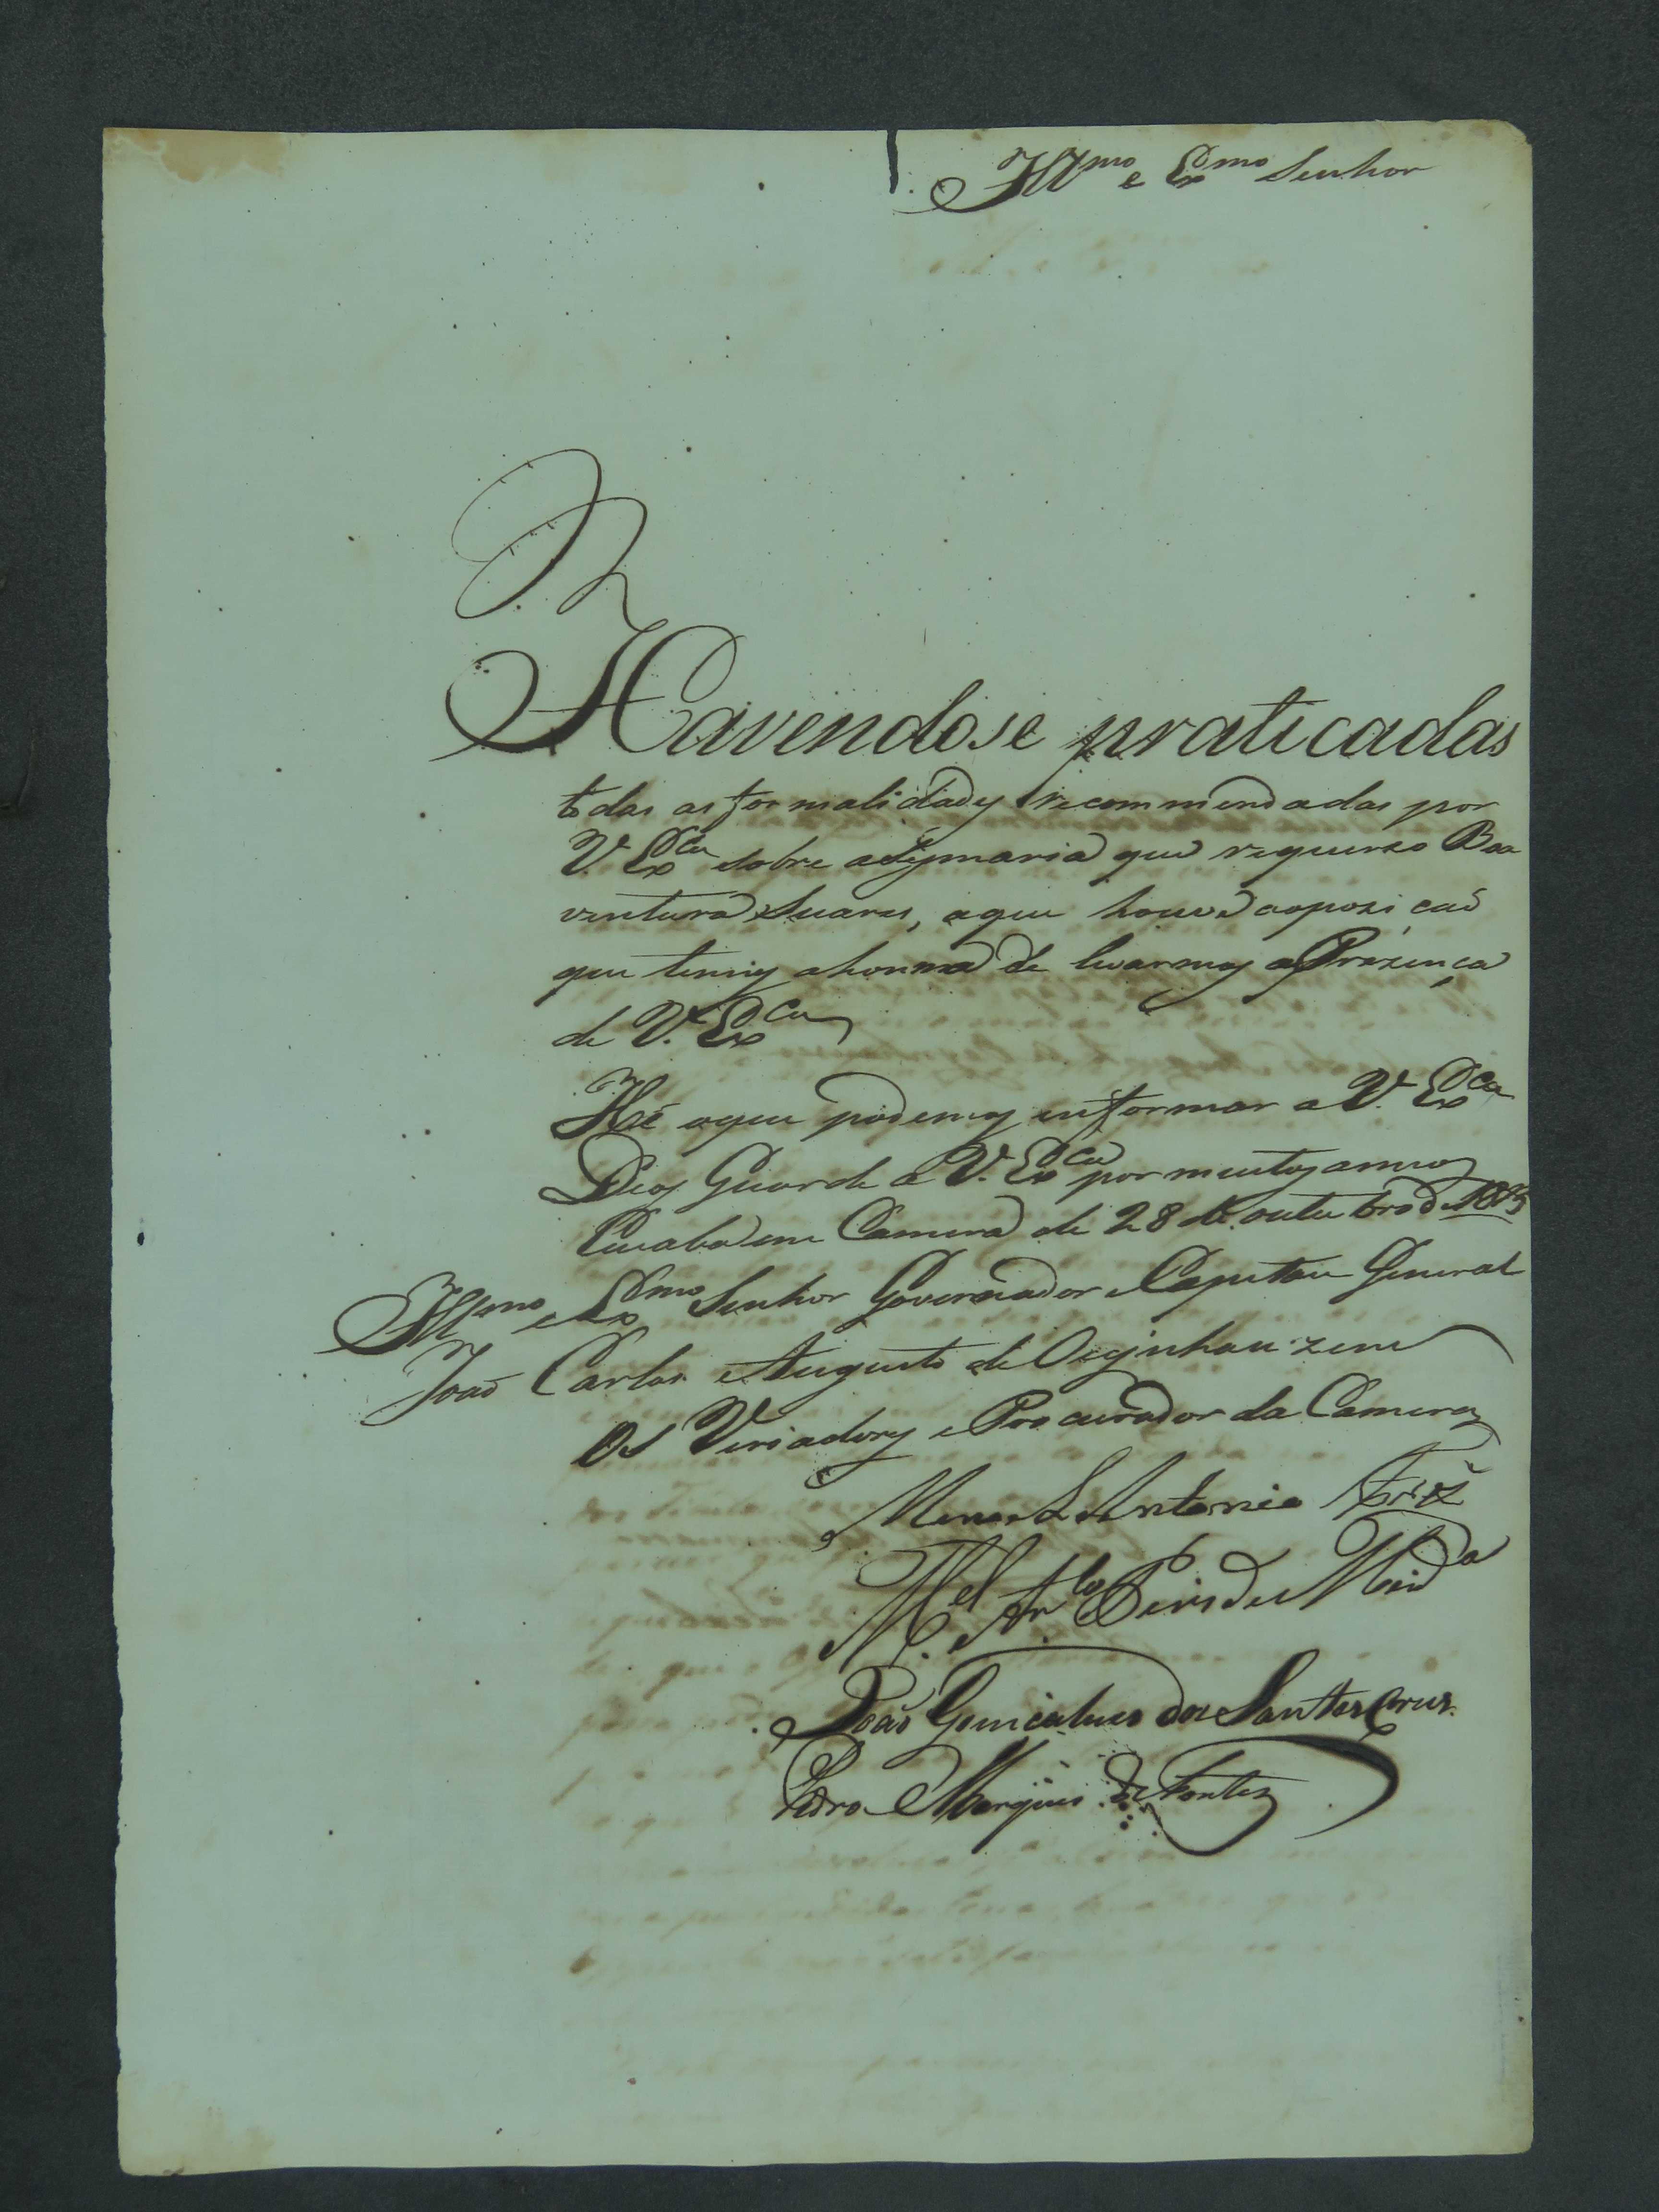 Ill.mo e Ex.mo Senhor
Havendose praticadas
todas as formalidades recommendadas por
V. Ex.cia sobre aSesmaria que requereo Boa
ventura Suares, aque houve aopozicaõ
que temos ahonrra de levarmos aPrezença
de V. Ex.cia
Hé oque podemos informar a V. Ex.cia
Deos Guarde a V. Ex.cia por muitos annos
Cuiaba em Camera de 28 de outubro de
Ill.mo e Ex.mo Senhor Governador e Capitaõ General
Joaõ Carlos Augusto de Oeÿnhauzem
Os Veriadores e Procurador da Camera
Manoel Antonio
M.el An.to Pires de Mir.da
Joaõ Goncalves dos Santos Crus.
Pedro Marques de Fontes